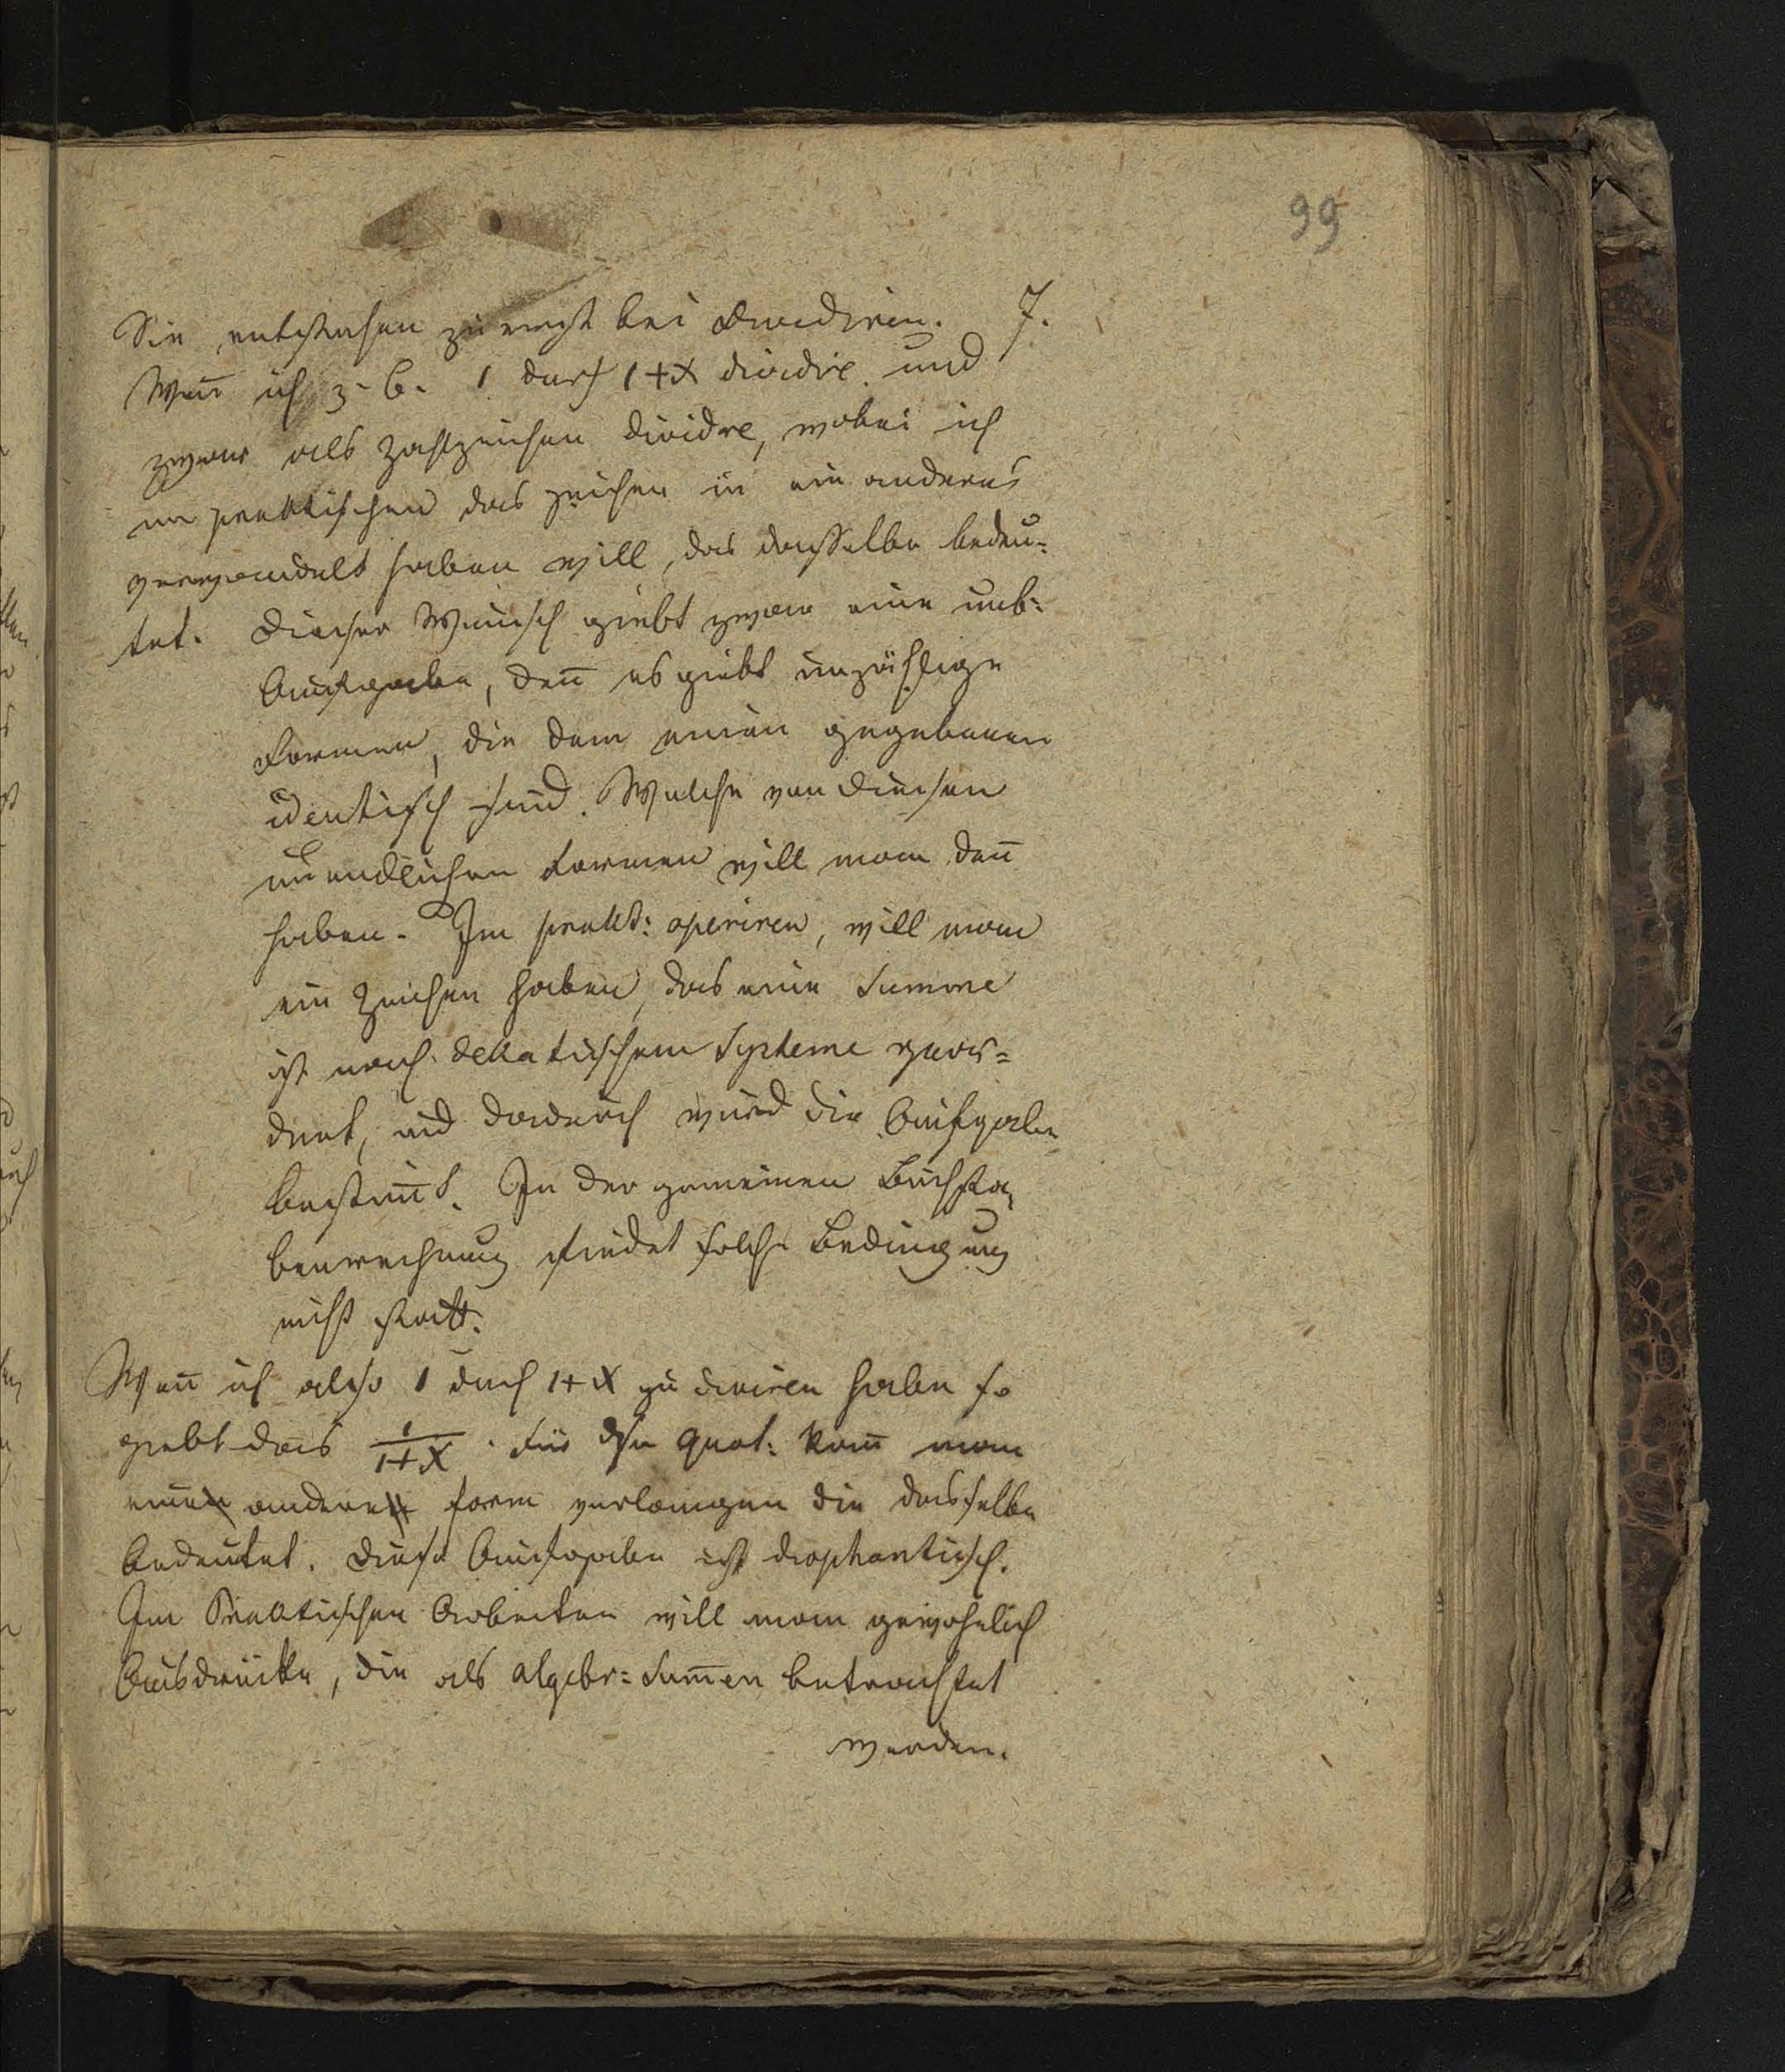 99
7.
Sie entstehen zuerst bei Dividiren.
Wen̄ ich z. b. 1 durch 1+x dividire und
zwar als Zahlzeichen dividre, wobei ich
im praktischen das Zeichen in ein anderes
verwandelt haben will, das dasselbe bedeu-
tet. Dieser Wunsch giebt zwar eine unb:
Aufgabe, den̄ es giebt unzählige
Formen, die dem einen gegebenen
identisch sind. Welche von diesen
unendlichen Formen will man den̄
haben. Im prakt: operiren, will man
ein Zeichen haben, das eine Summe
ist nach dekatischem Systeme geor-
dnet, und dadurch wird die Aufgabe
bestim̄t. In der gemeinen Buchsta-
benrechnung findet solche Bedingung
nicht statt.
Wen̄ ich also 1 durch 1+x zu diviren haben so
giebt das 1/1+x. Für den Quot: kan̄ man
eine andere Form verlangen die dasselbe
bedeutet. Diese Aufgabe ist diophantisch.
Im Praktischen Arbeiten will man gewohnlich
Ausdrücke, die als algebr: Sum̄en betrachtet
werden.